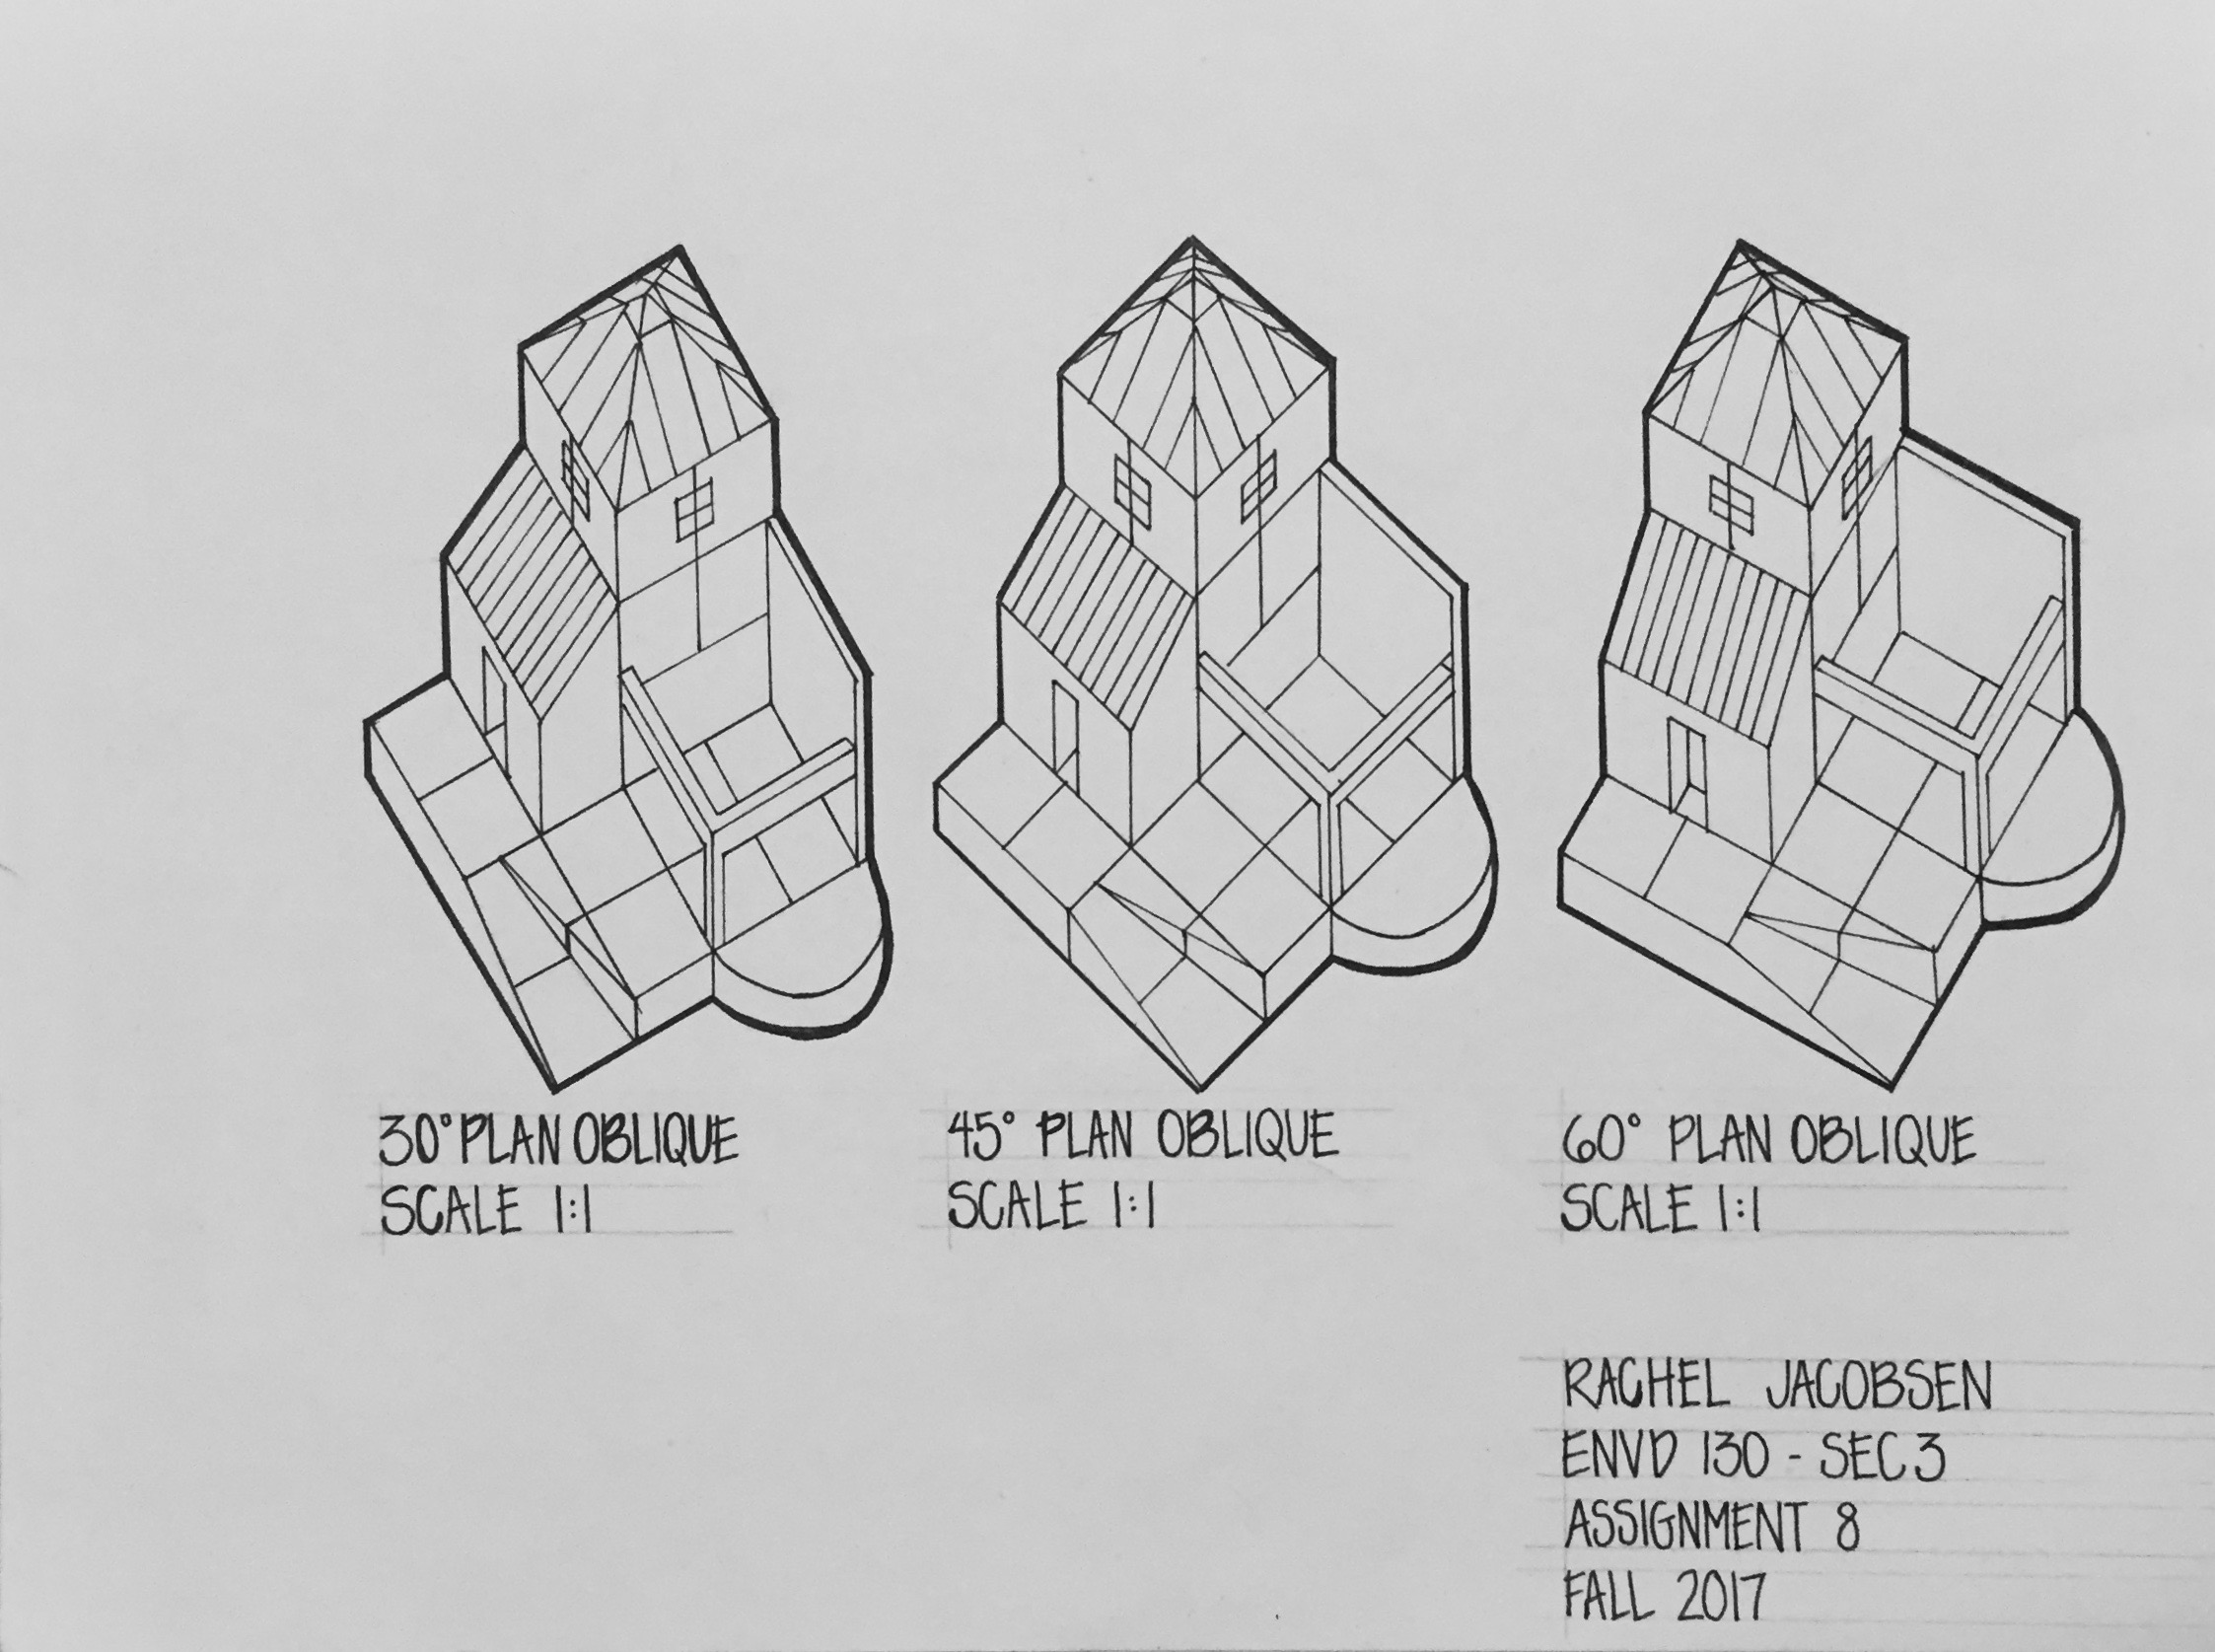 30° PLAN OBLIQUE
SCALE 1:1
45° PLAN OBLIQUE
SCALE 1:1
60° PLAN OBLIQUE
SCALE 1:1
RACHEL JACOBSEN
ENVD 130 - SEC 3
ASSIGNMENT 8
FALL 2017